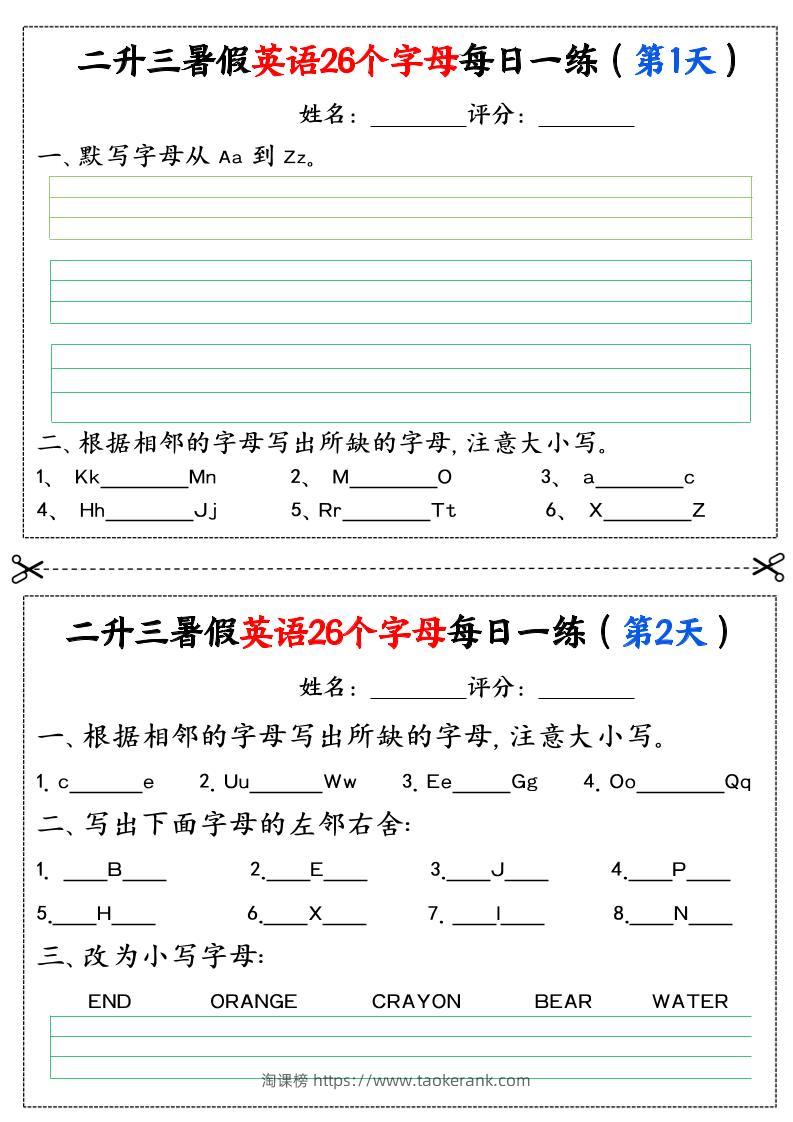 二升三暑假英语26个字母每日一练（第1天）
姓名：________评分：________
一、默写字母从 Aa 到 Zz。
二、根据相邻的字母写出所缺的字母,注意大小写。
1、 Kk________Mn 2、 M________O 3、 a________c
4、 Hh________Jj 5、Rr________Tt 6、 X________Z
二升三暑假英语26个字母每日一练（第2天）
姓名：________评分：________
一、根据相邻的字母写出所缺的字母,注意大小写。
1. c______e 2. Uu______Ww 3. Ee_____Gg 4. Oo________Qq
二、写出下面字母的左邻右舍:
1. ____B____ 2.____E____ 3.____J____ 4.____P____
5.____H____ 6.____X____ 7. ____I____ 8.____N____
三、改为小写字母:
END ORANGE CRAYON BEAR WATER
淘课榜 https://www.taokerank.com